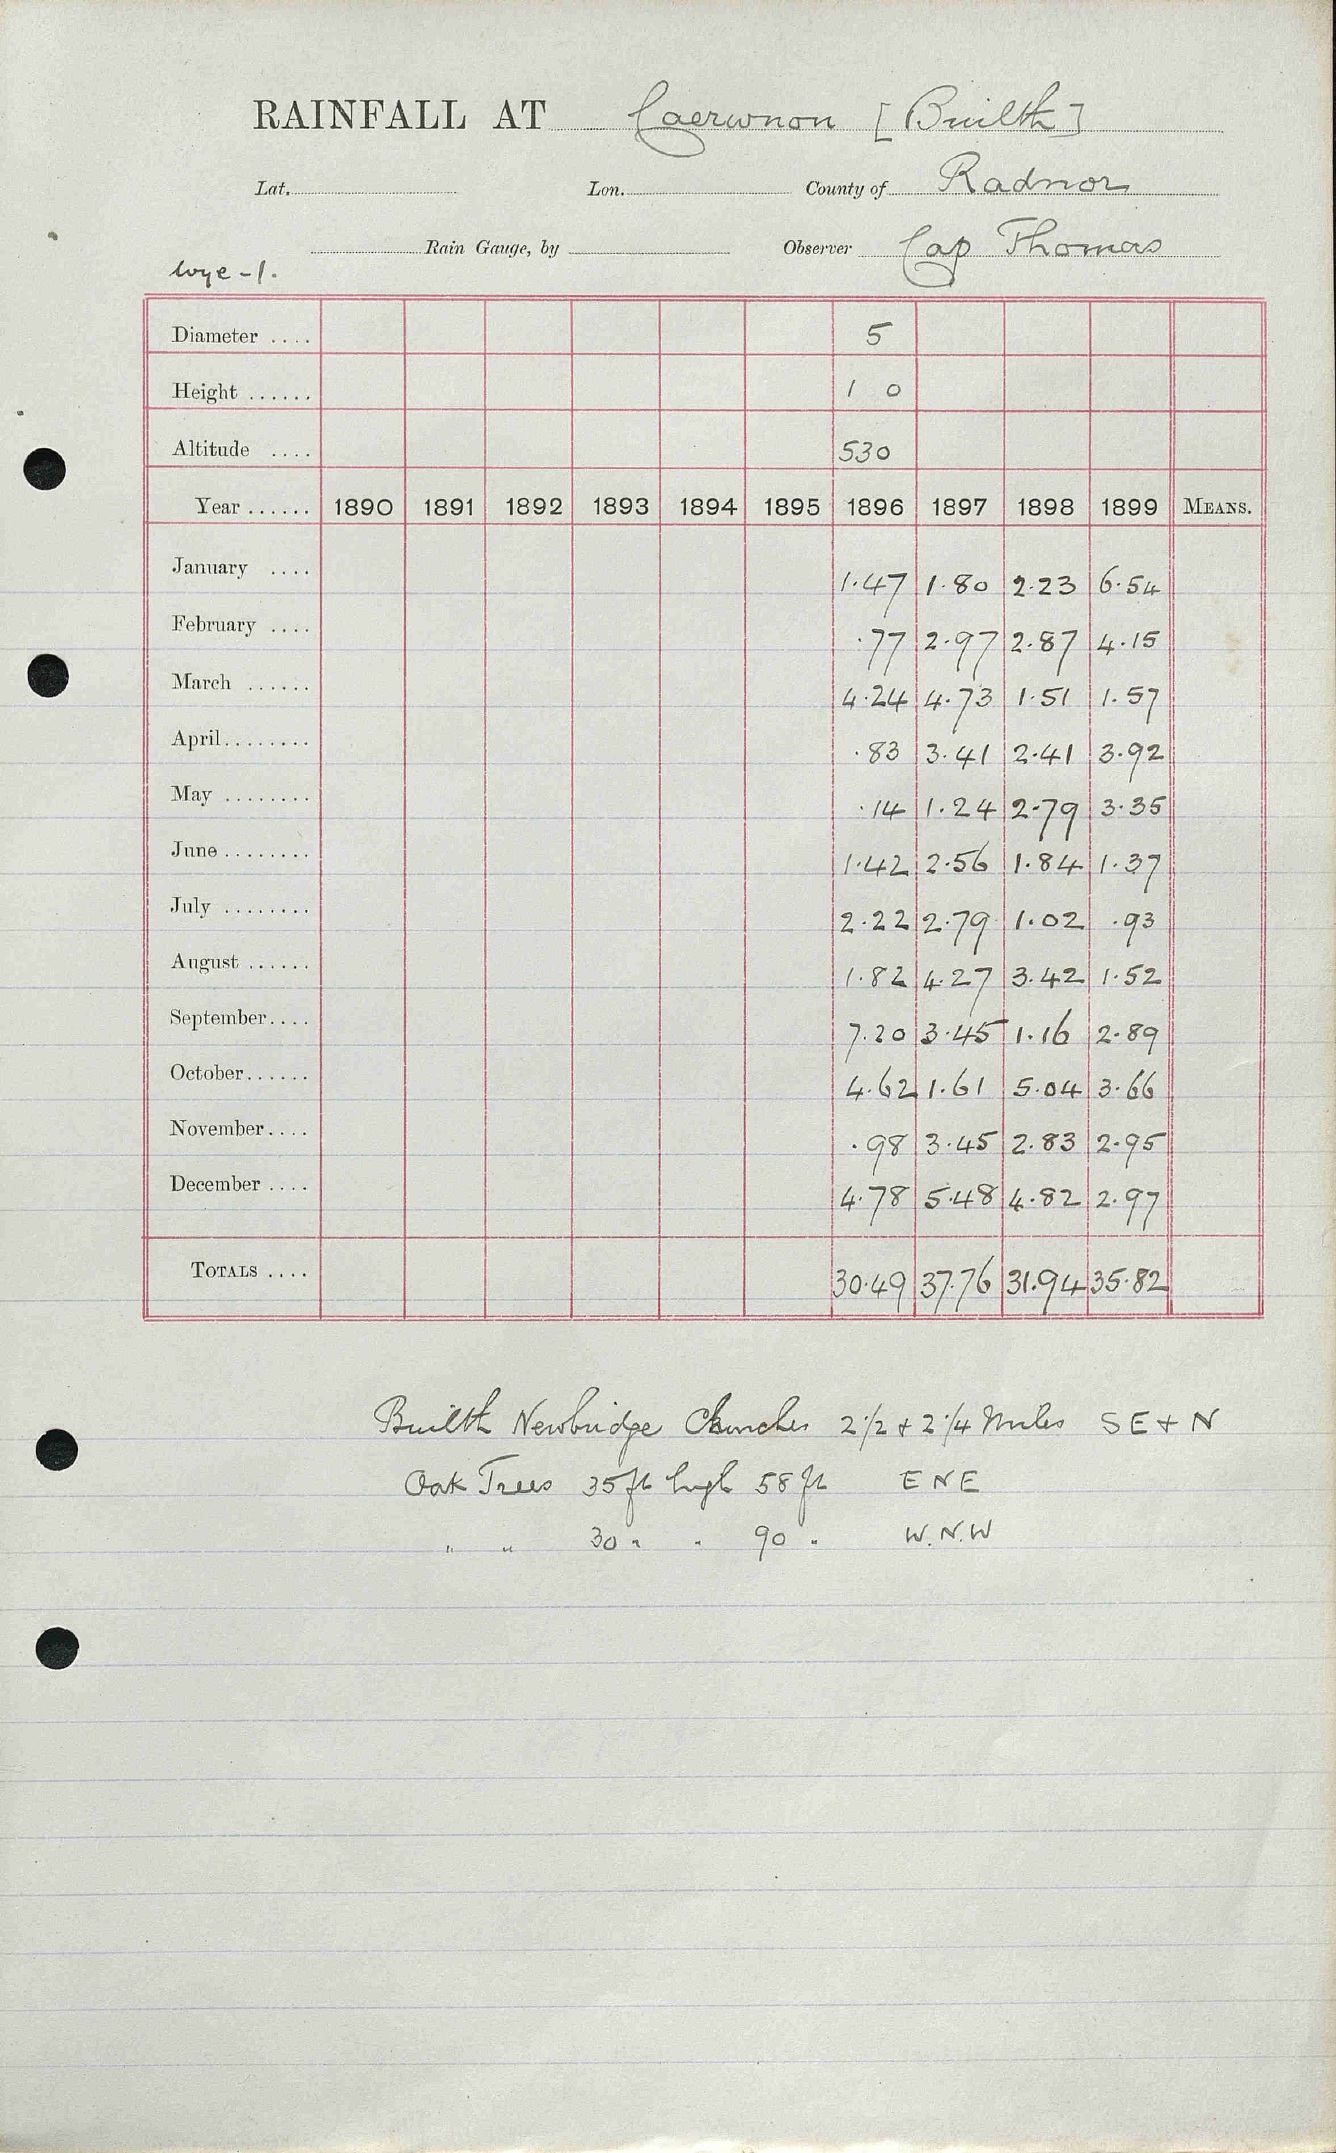 RAINFALL AT Caerwnon [Builth]
Lat. Lon. County of Radnor
Rain Gauge, by Observer Cap Thomas
Wye - 1.
Diameter .... 5
Height ...... 1 0
Altitude .... 530
Year ...... 1890 1891 1892 1893 1894 1895 1896 1897 1898 1899 MEANS.
January .... 1.47 1.80 2.23 6.54
February .... .77 2.97 2.87 4.15
March ...... 4.24 4.73 1.51 1.57
April........ .83 3.41 2.41 3.92
May ........ .14 1.24 2.79 3.35
June ........ 1.42 2.56 1.84 1.37
July ........ 2.22 2.79 1.02 .93
August ...... 1.82 4.27 3.42 1.52
September.... 7.20 3.45 1.16 2.89
October...... 4.62 1.61 5.04 3.66
November.... .98 3.45 2.83 2.95
December .... 4.78 5.48 4.82 2.97
TOTALS .... 30.49 37.76 31.94 35.82
Builth Newbridge Churches 2 1/2 + 2 1/4 Miles SE + N
Oak Trees 35 ft high 58 ft ENE
" " 30 " " 90 " W.N.W